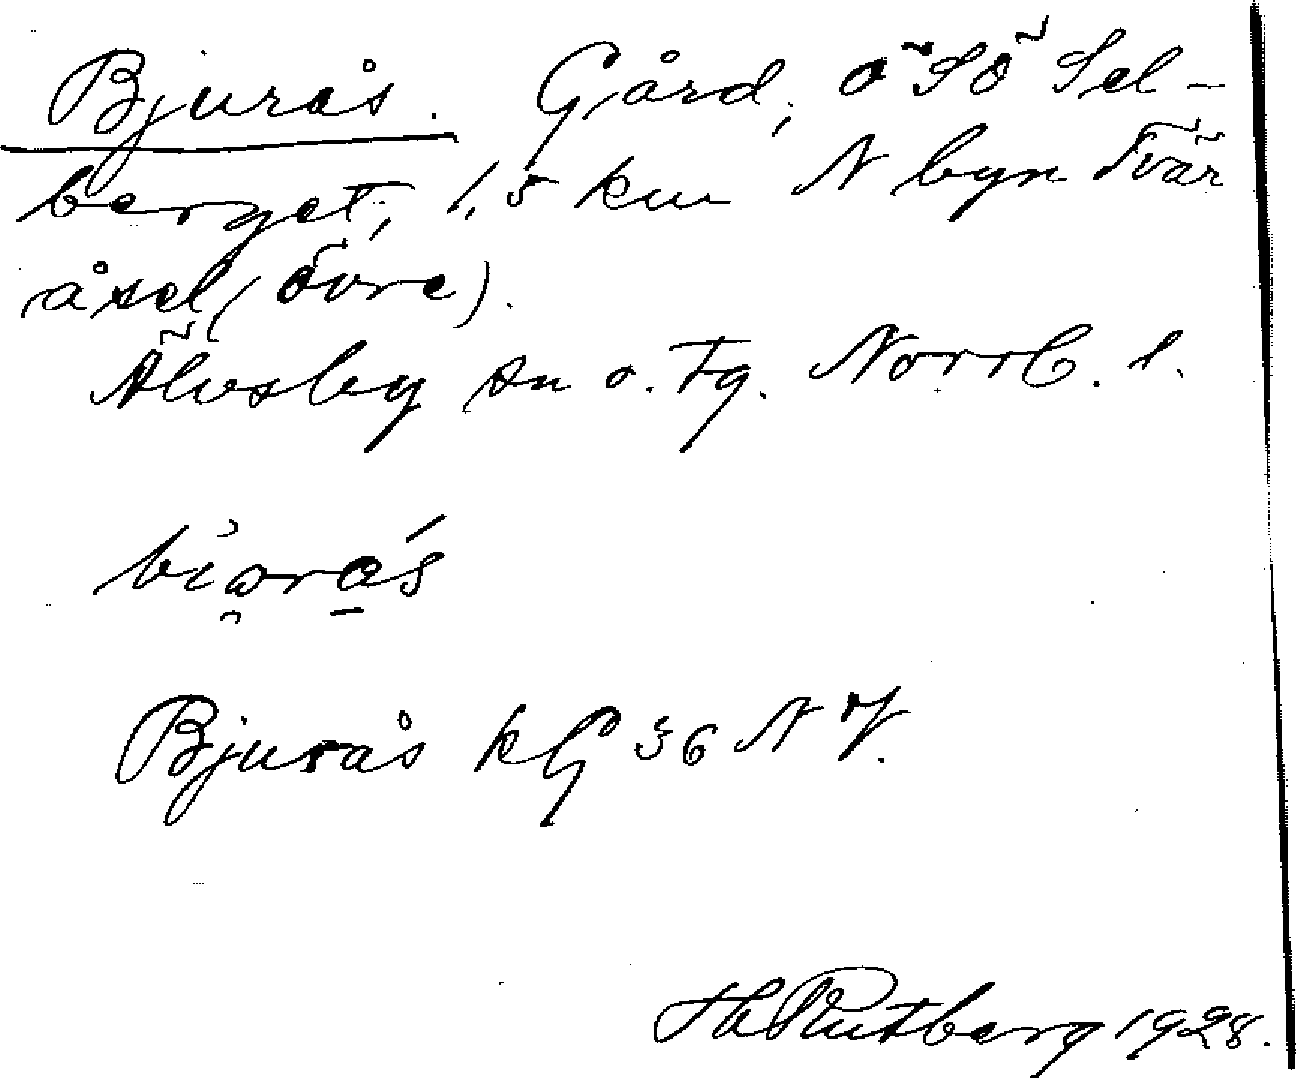 Bjurås. Gård, ö SÖ Sel-
berget, 1,5 km N byn Tvär
åsel (Övre).
Älvsby sn o. Tg. Norrb. l.
Bjurås kG 36 NV.
Hl Rutberg 1928.